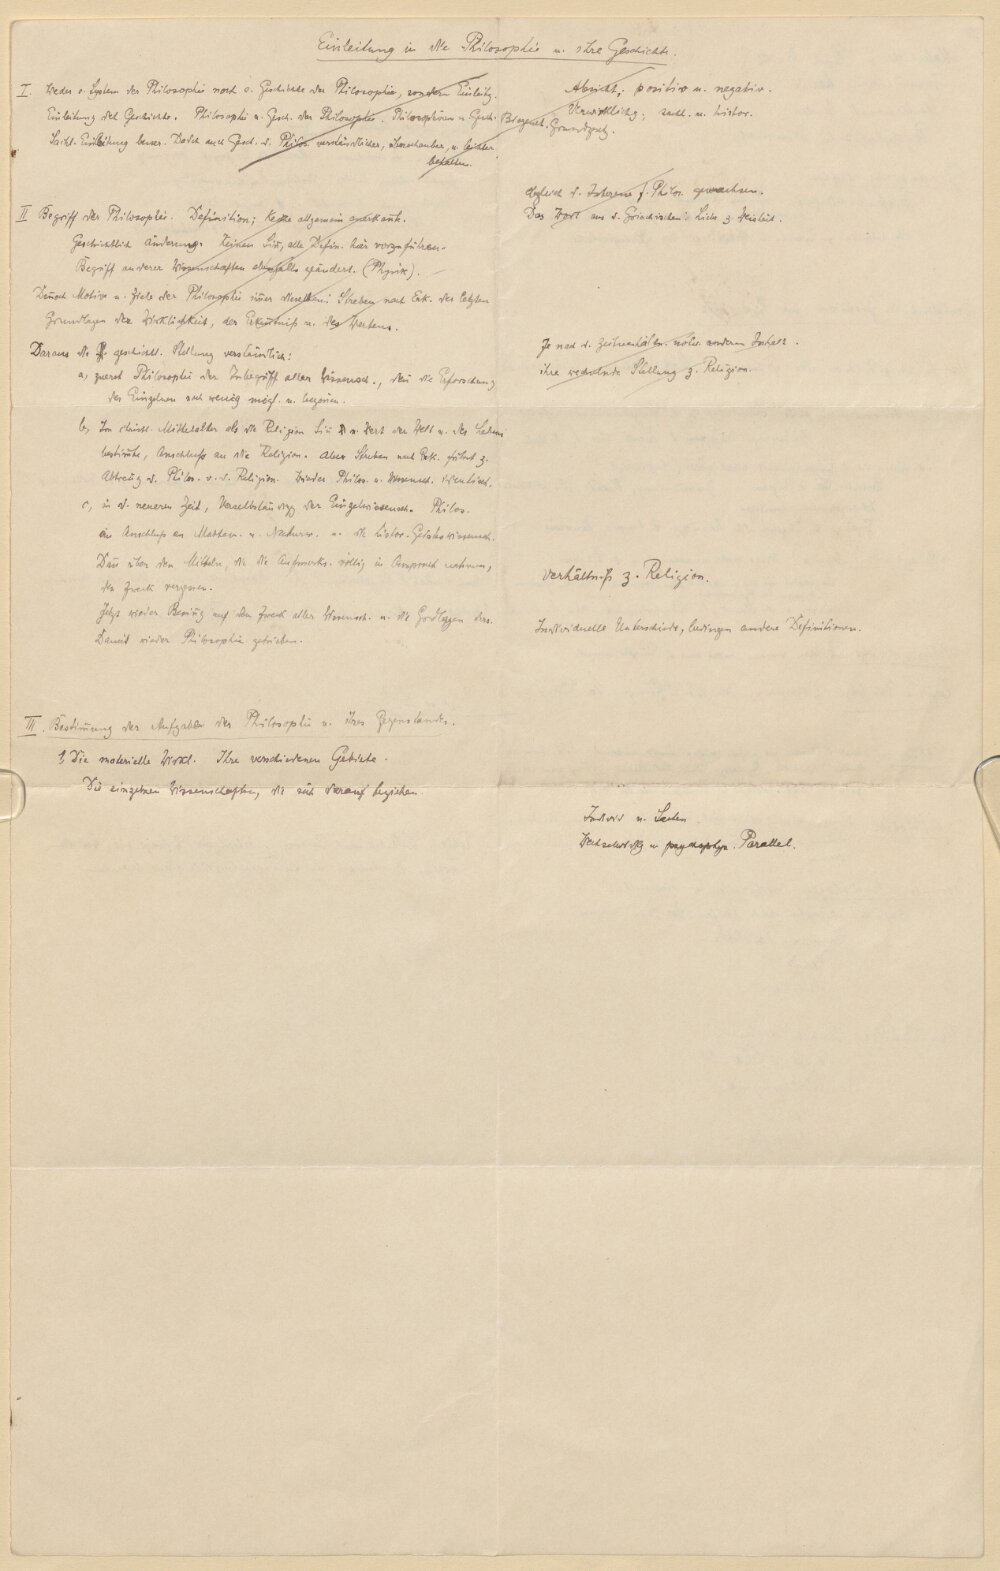 Einleitung in die Philosophie u. ihre Geschichte.
I. Weder e. System der Philosophie noch e. Geschichte der Philosophie, sondern Einleitg.
Einleitung der Geschichte. Philosophie u. Gesch. der Philosophie. Philosophieren u. Gesch.
Sachl. Einleitung besser. Doch auch Gesch. d. Philos. verständlicher, überschaubar, u. leichter
behalten.
Absicht; positiv u. negativ.
Verwirklichg; sachl. u. histor.
Biogenet. Grundgesetz.
II Begriff der Philosophie. Definition; keine allgemein anerkannt.
Geschichtlich Änderung. Keinen Sinn, alle Defin. hier vorzuführen.
Begriff anderer Wissenschaften ebenfalls geändert. (Physik).
Dennoch Motive u. Ziele der Philosophie immer dieselben: Streben nach Erk. der letzten
Grundlagen der Wirklichkeit, der Erkenntniß u. des Wertens.
Obgleich d. Interesse f. Philos. gewachsen.
Das Wort aus d. Griechischen: Liebe z. Weisheit.
Daraus die geschichtl. Stellung verständlich:
a, zuerst Philosophie der Inbegriff aller Wissensch., denn die Erforschung
des Einzelnen noch wenig mögl. u. begonnen.
Je nach d. Zeitverhältn. anderen Inhalt.
ihre wechselnde Stellung z. Religion.
b, Im christl. Mittelalter als die Religion Sinn u. Wert der Welt u. des Lebens
bestimmte, Anschluß an die Religion. Aber Streben nach Erk. führt z.
Abtreng d. Philos. v. d. Religion. Wieder Philos. u. Wissensch. identisch.
c, in d. neueren Zeit, Verselbständigg der Einzelwissensch. Philos.
im Anschluß an Mathem. u. Naturw. u. die histor. Geisteswissensch.
Dann über den Mitteln, die die Aufmerks. völlig in Anspruch nehmen,
den Zweck vergessen.
Jetzt wieder Besinng auf den Zweck aller Wissensch. u. die Grdlagen ders.
Damit wieder Philosophie getrieben.
Verhältniß z. Religion.
Individuelle Unterschiede, bedingen andere Definitionen.
III. Bestimmung der Aufgaben der Philosophie u. ihres Gegenstandes.
1, Die materielle Wirkl. Ihre verschiedenen Gebiete.
Die einzelnen Wissenschaften, die sich darauf beziehen.
Individ u.
Wechselwirkg u. psychophys. Parallel.